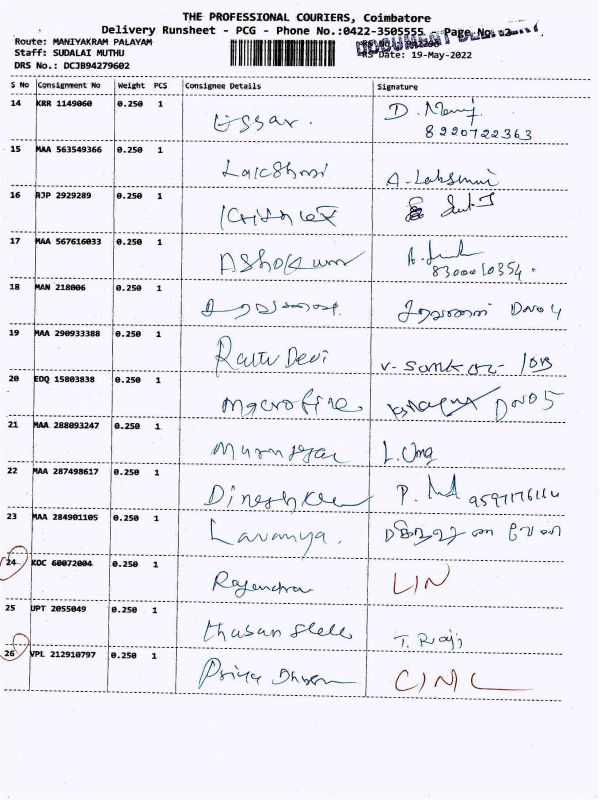 THE PROFESSIONAL COURIERS, Coimbatore
Delivery Runsheet - PCG - Phone No.:0422-3505555 Page No.:2
Route: MANIYAKRAM PALAYAM
Staff: SUDALAI MUTHU
DRS Date: 19-May-2022
DRS No.: DCJB94279602
DOCUMENT DELIVERY
S No Consignment No Weight PCS Consignee Details Signature
14 KRR 1149060 0.250 1 Essar. D. Manoj
8220722363
15 MAA 563549366 0.250 1 Lakshmi A-Lakshmi
16 RJP 2929289 0.250 1
17 MAA 567616033 0.250 1 Ashokumar
8300010354.
18 MAN 218006 0.250 1 DNO 4
19 MAA 290933388 0.250 1 Devi V-Sankar- IOB
20 EDQ 15803838 0.250 1 macrofire DNO5
21 MAA 288093247 0.250 1 Murugesan L.Uma
22 MAA 287498617 0.250 1 Dineshkumar P.
23 MAA 284901105 0.250 1 Lavanya.
24 KOC 60072004 0.250 1 Rajendra LIN
25 UPT 2055049 0.250 1 T.
26 VPL 212910797 0.250 1 Priya CINL